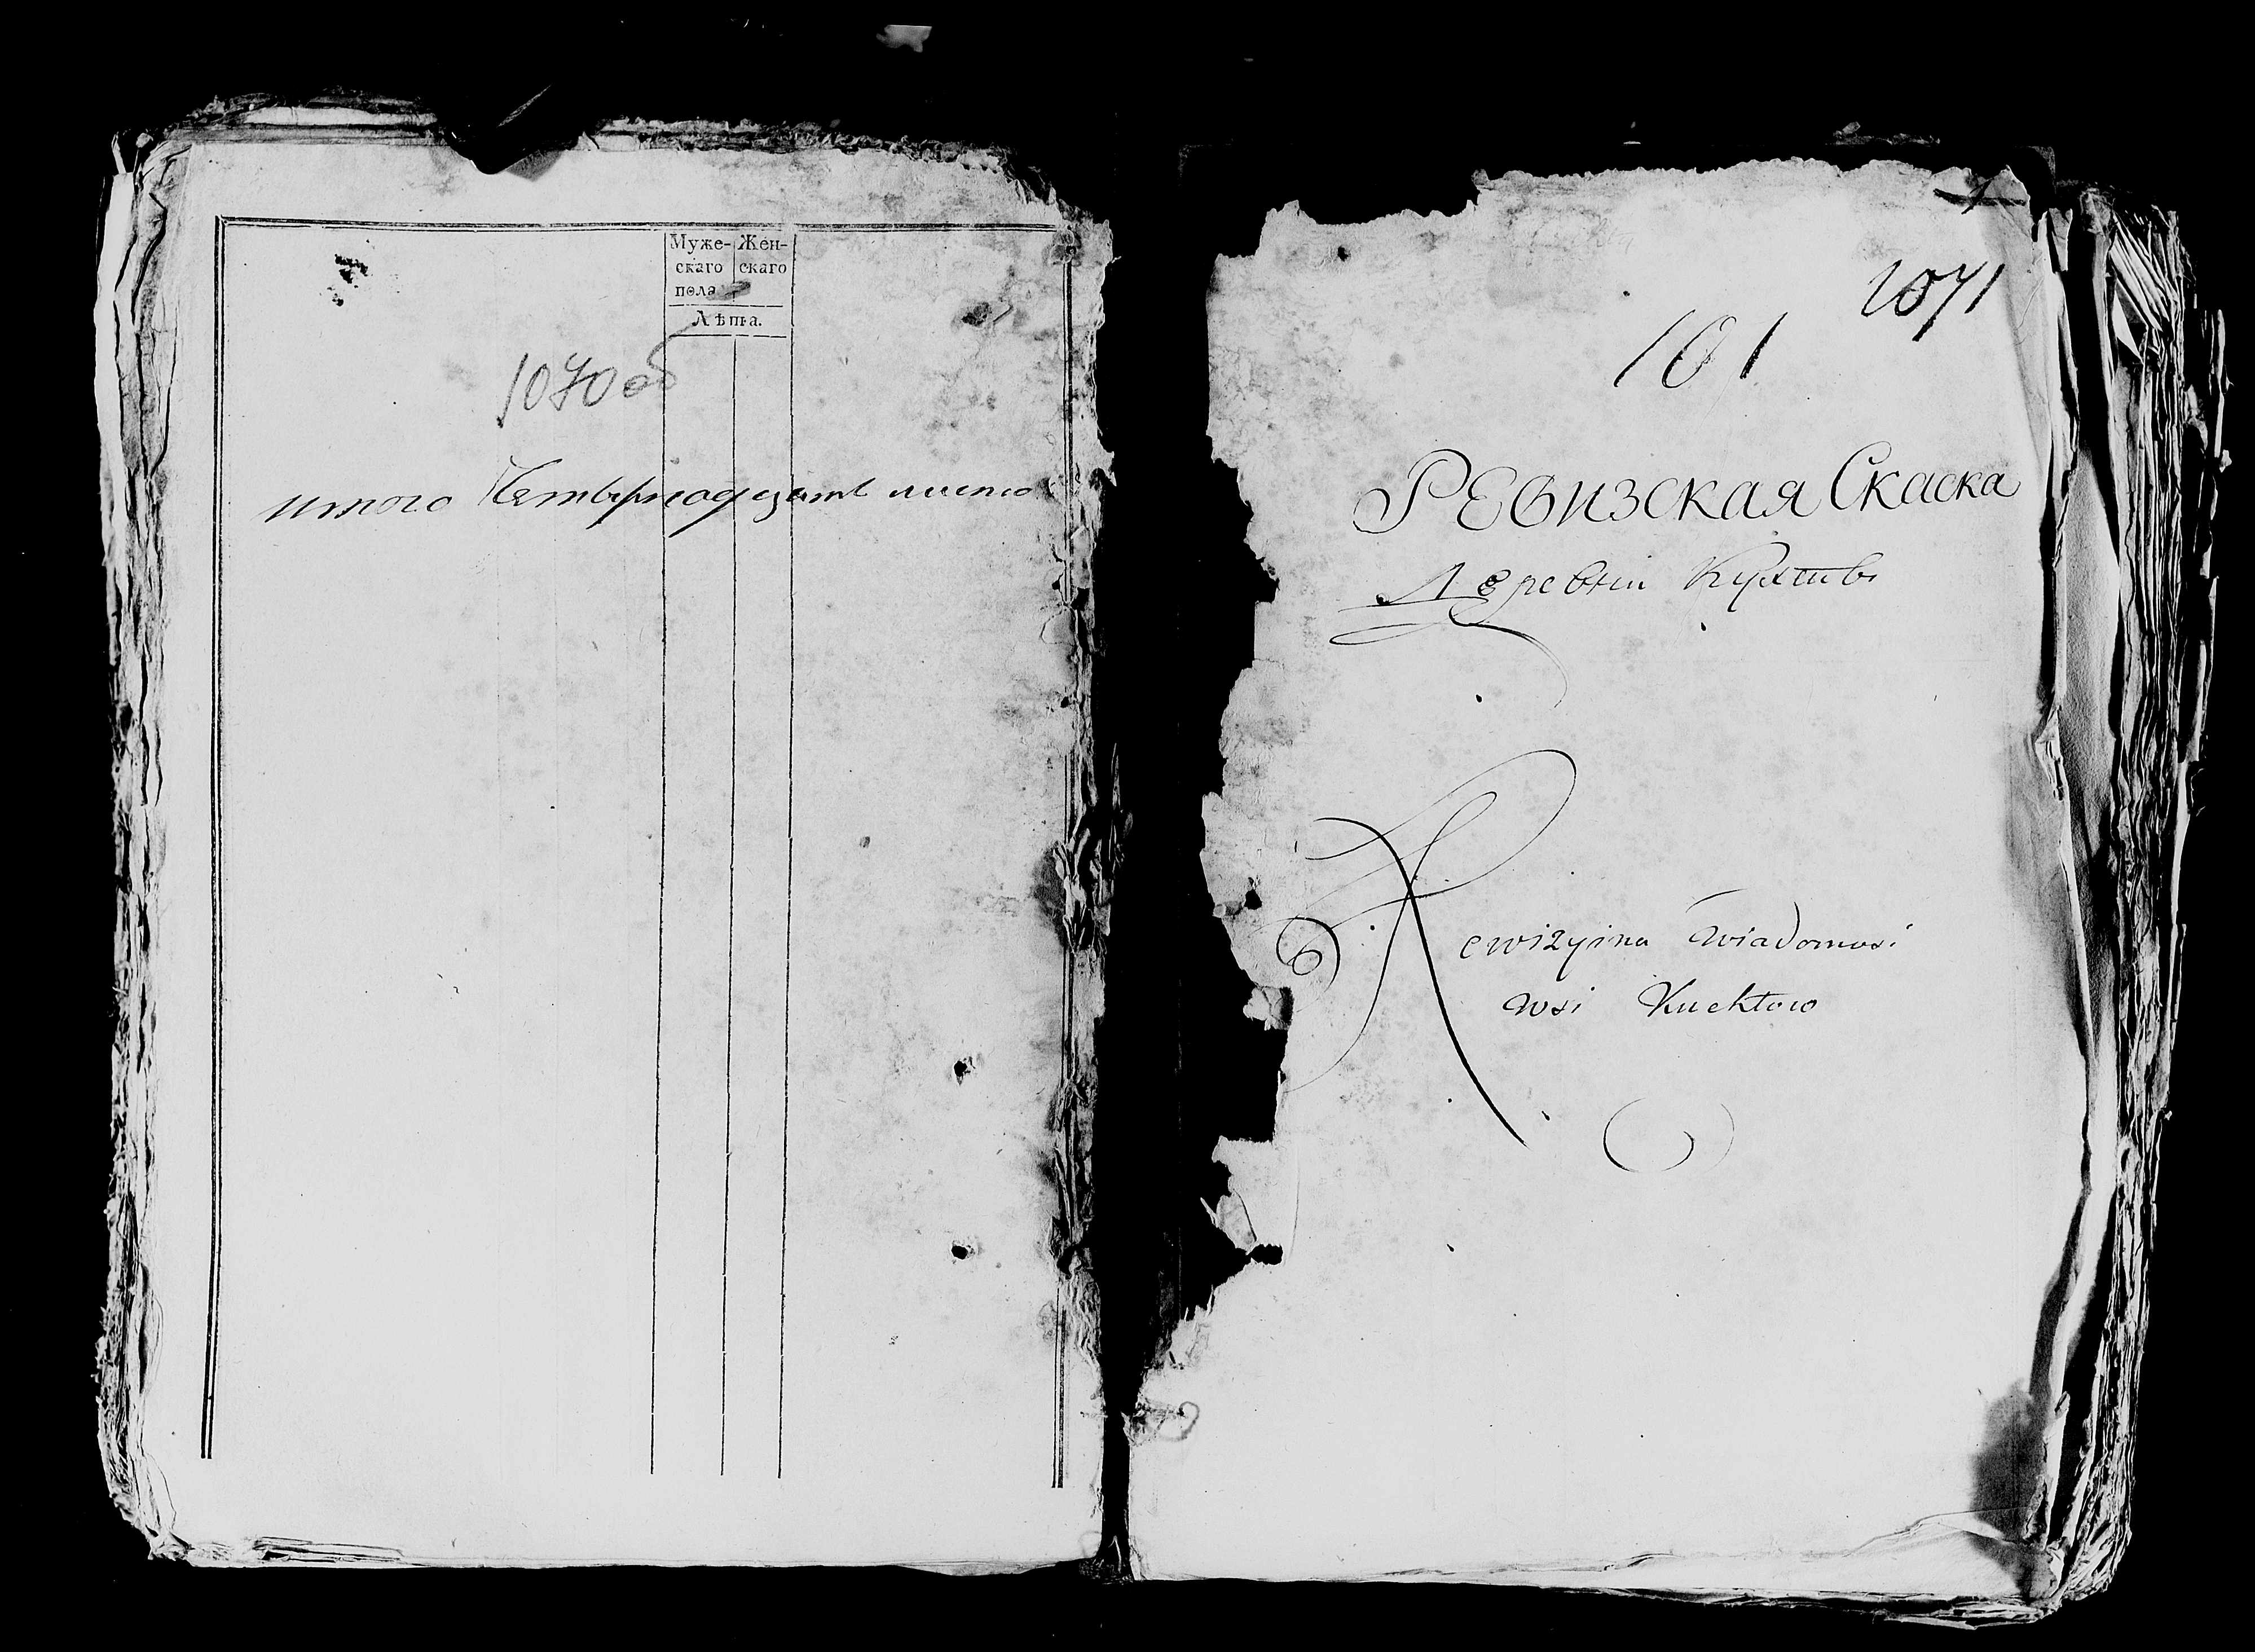 Муже- Жен-
скаго скаго
пола
Лѣта.
1070об
итого Четырнадцать листов
1071
101
Ревизская Скаска
Деревни
Rewizyina Wiadomosi
wsi Kuchtow